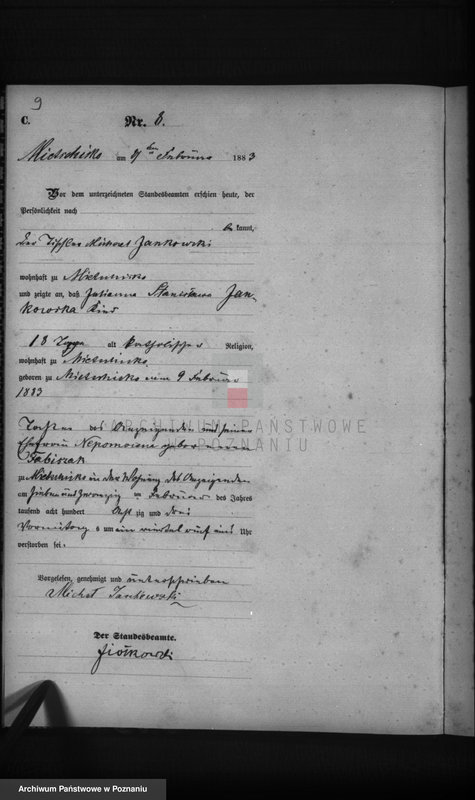 9
C.
Nr. 8.
Mietschisko am ten Februar 1883
Vor dem unterzeichneten Standesbeamten erschien heute, der
Persönlichkeit nach
be kannt,
der Tischler Michael Jankowski
wohnhaft zu Mietschisko
und zeigte an, daß Julianna Stanisława Jan-
kowska Kind
18 Tage alt katholischer Religion,
wohnhaft zu Mietschisko
geboren zu Mietschisko am 9 Februar
1883
Tochter des Anzeigenden und seiner
Ehefrau Nepomucena geborenen
Fabiszak
zu Mietschisko in der Wohnung des Anzeigenden
am sieben und zwanzig ten Februar des Jahres
tausend acht hundert acht zig und drei
Vormittags um ein viertel auf eins Uhr
verstorben sei.
Vorgelesen, genehmigt und unterschrieben
Michał Jankowski
Der Standesbeamte.
Ziółkowski
ARCHIWUM PAŃSTWOWE
W POZNANIU
Archiwum Państwowe w Poznaniu